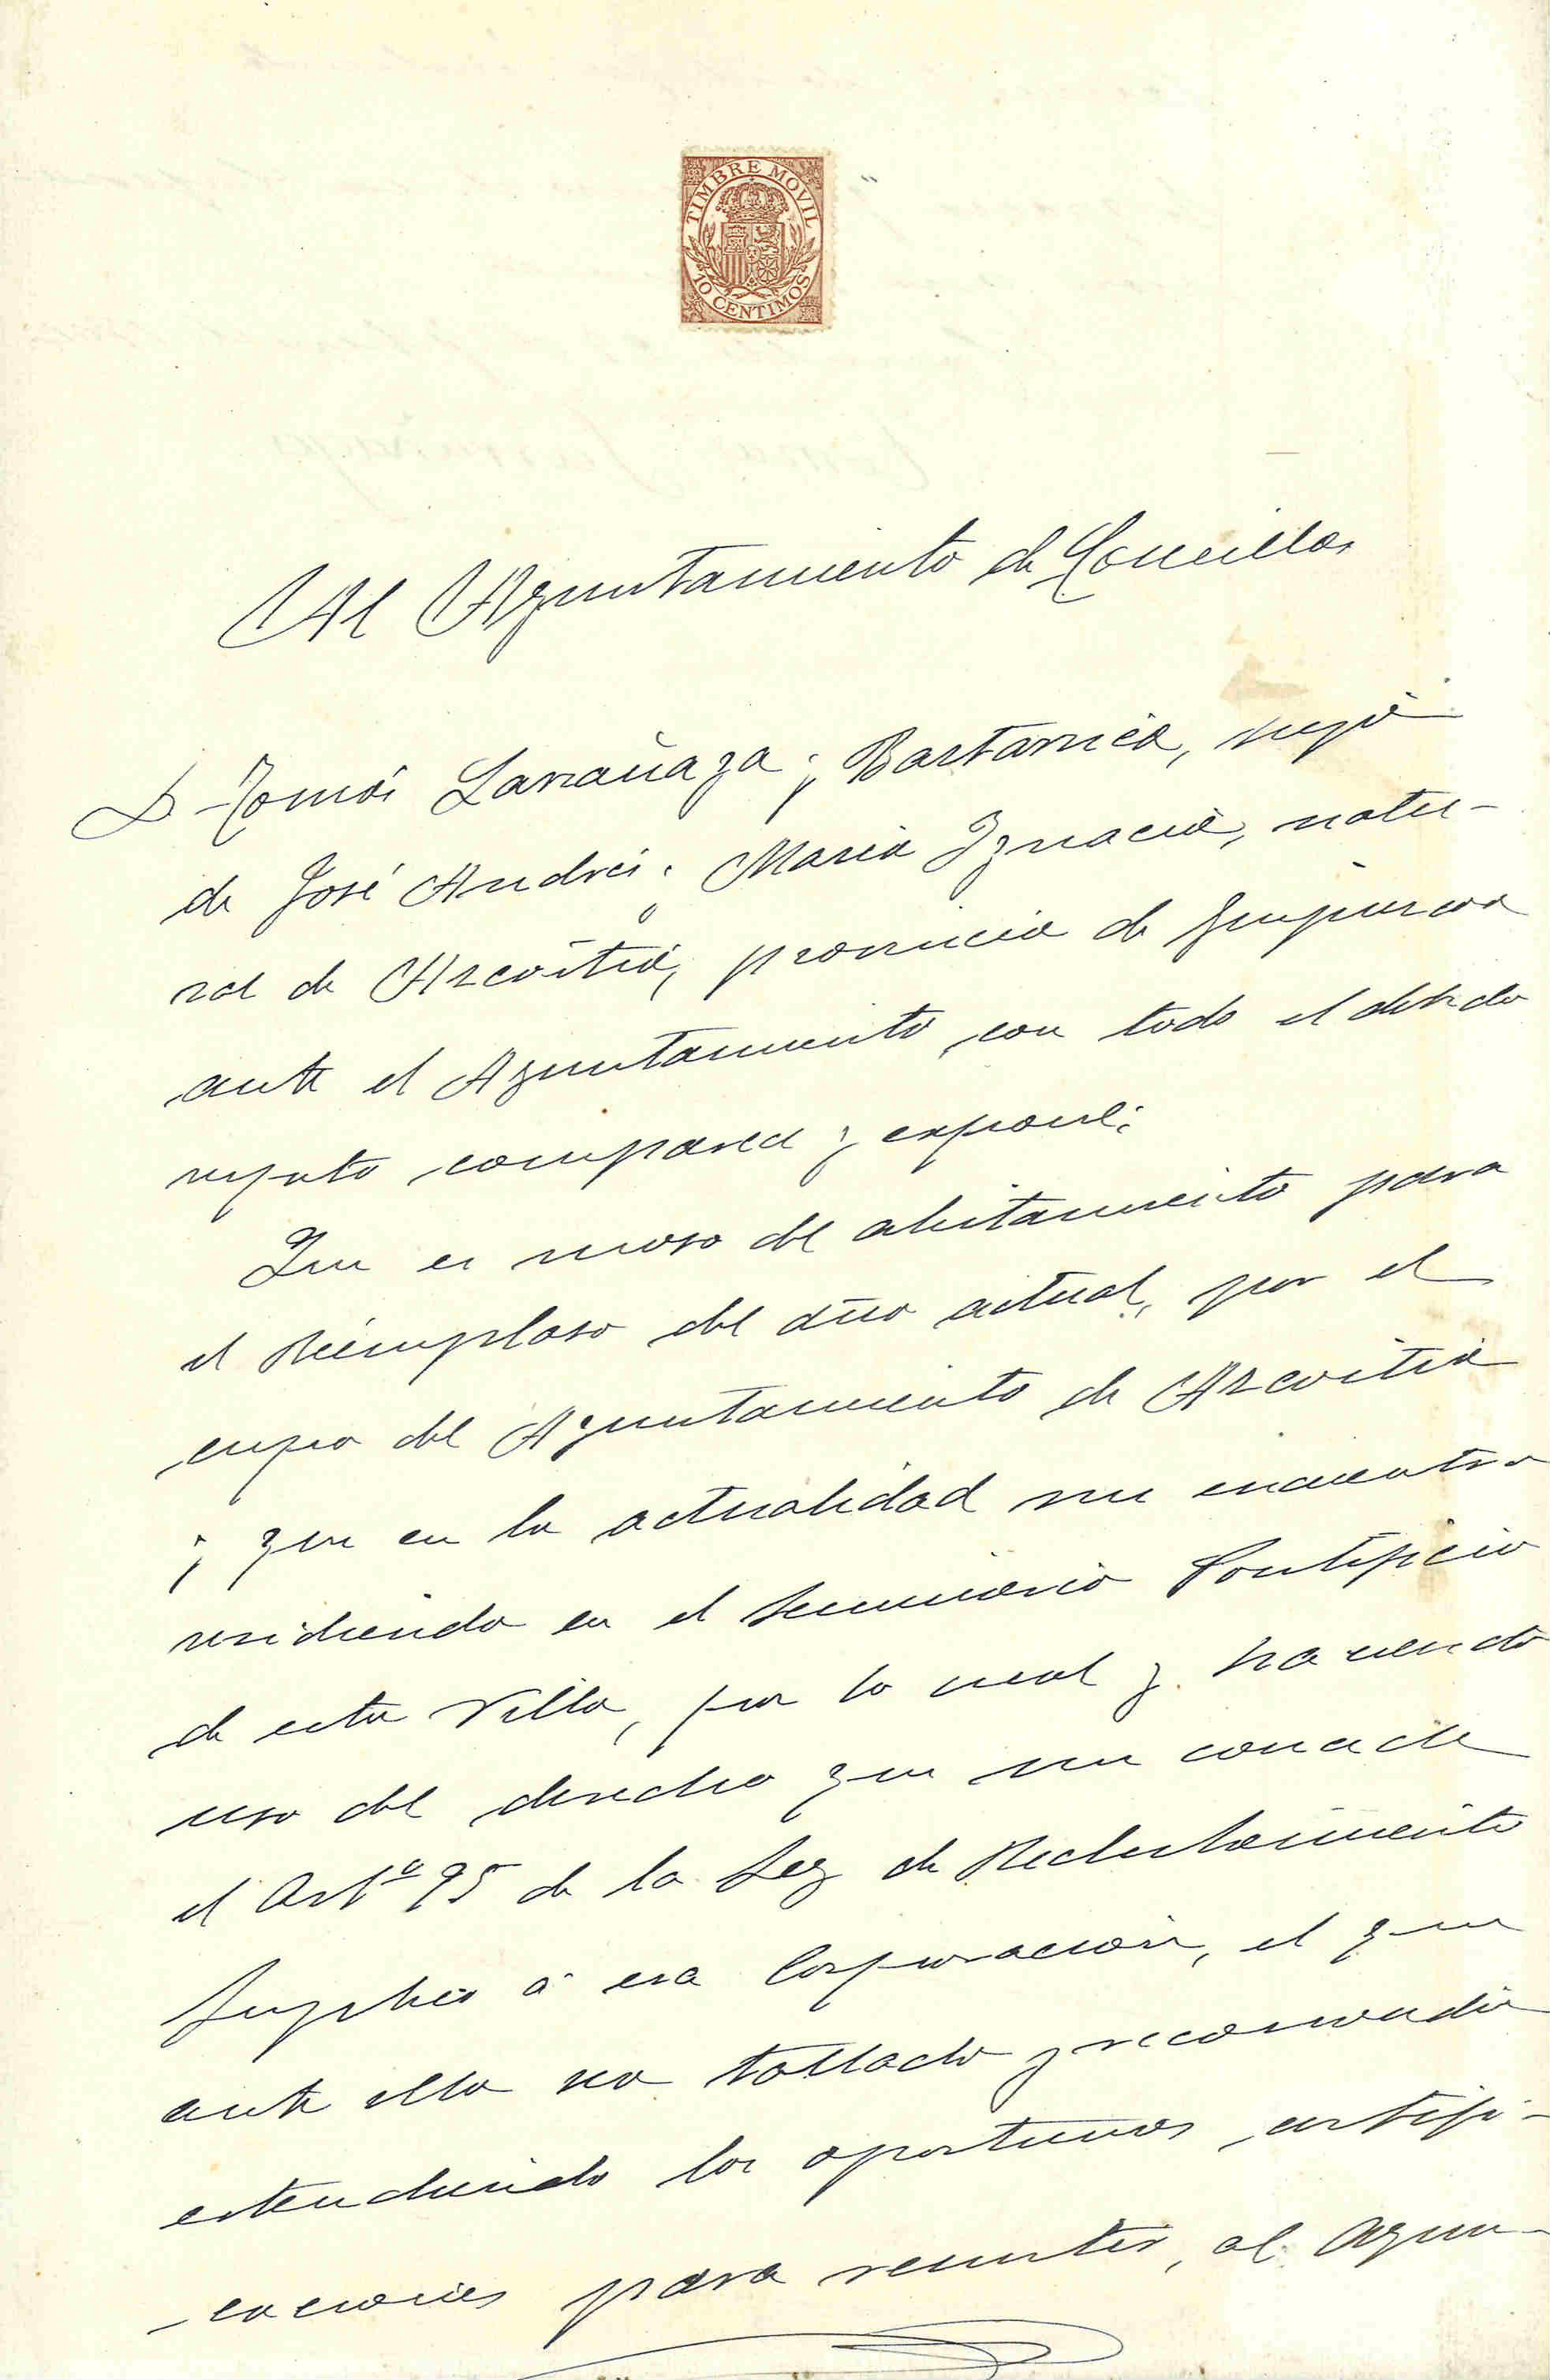 TIMBRE MOVIL
10 CENTIMOS
Al Ayuntamiento de Comillas
D. Tomás Larrañaga y Bastarrica, hijo
de José Andrés y María Ignacia, natu-
ral de Azcoitia, provincia de Guipúzcoa
ante el Ayuntamiento, con todo el debido
respeto comparece y expone:
Que es mozo del alistamiento para
el Reemplazo del año actual, por el
cupo del Ayuntamiento de Azcoitia
y que en la actualidad me encuentro
residiendo en el Seminario Pontificio
de esta Villa, por lo cual y haciendo
uso del derecho que me concede
el Artº 95 de la Ley de Reclutamiento
Suplico á esa Corporación, el que
ante ella sea tallado y reconocido
estendiendo los oportunos certifi-
caciones para remitir, al Ayun-